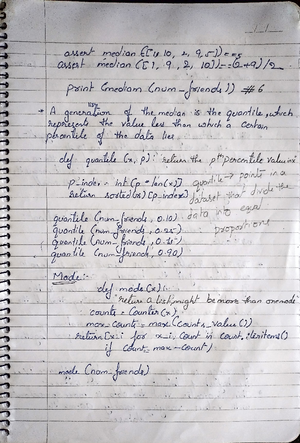 assert median ([1, 10, 2, 9, 5]) == 5
assert median ([1, 9, 2, 10]) == (2+9)/2
print (median (num_friends)) # 6
A generation of the median is the quantile, which
represents the value less than which a certain
percentile of the data lies
def quantile (x, p): return the pth percentile value in x
p_index = int(p * len(x))
return sorted(x) [p_index]
quantile → points in a
dataset that divide the
data into equal
proportions
quantile (num_friends, 0.10)
quantile (num_friends, 0.25)
quantile (num_friends, 0.75)
quantile (num_friends, 0.90)
Mode:-
def mode (x):
"return a list, might be more than one mode
counts = Counter (x)
max_counts = max (counts, value ())
return [x_i for x_i, count in count.iteritems()
if count = max_count]
mode (num_friends)